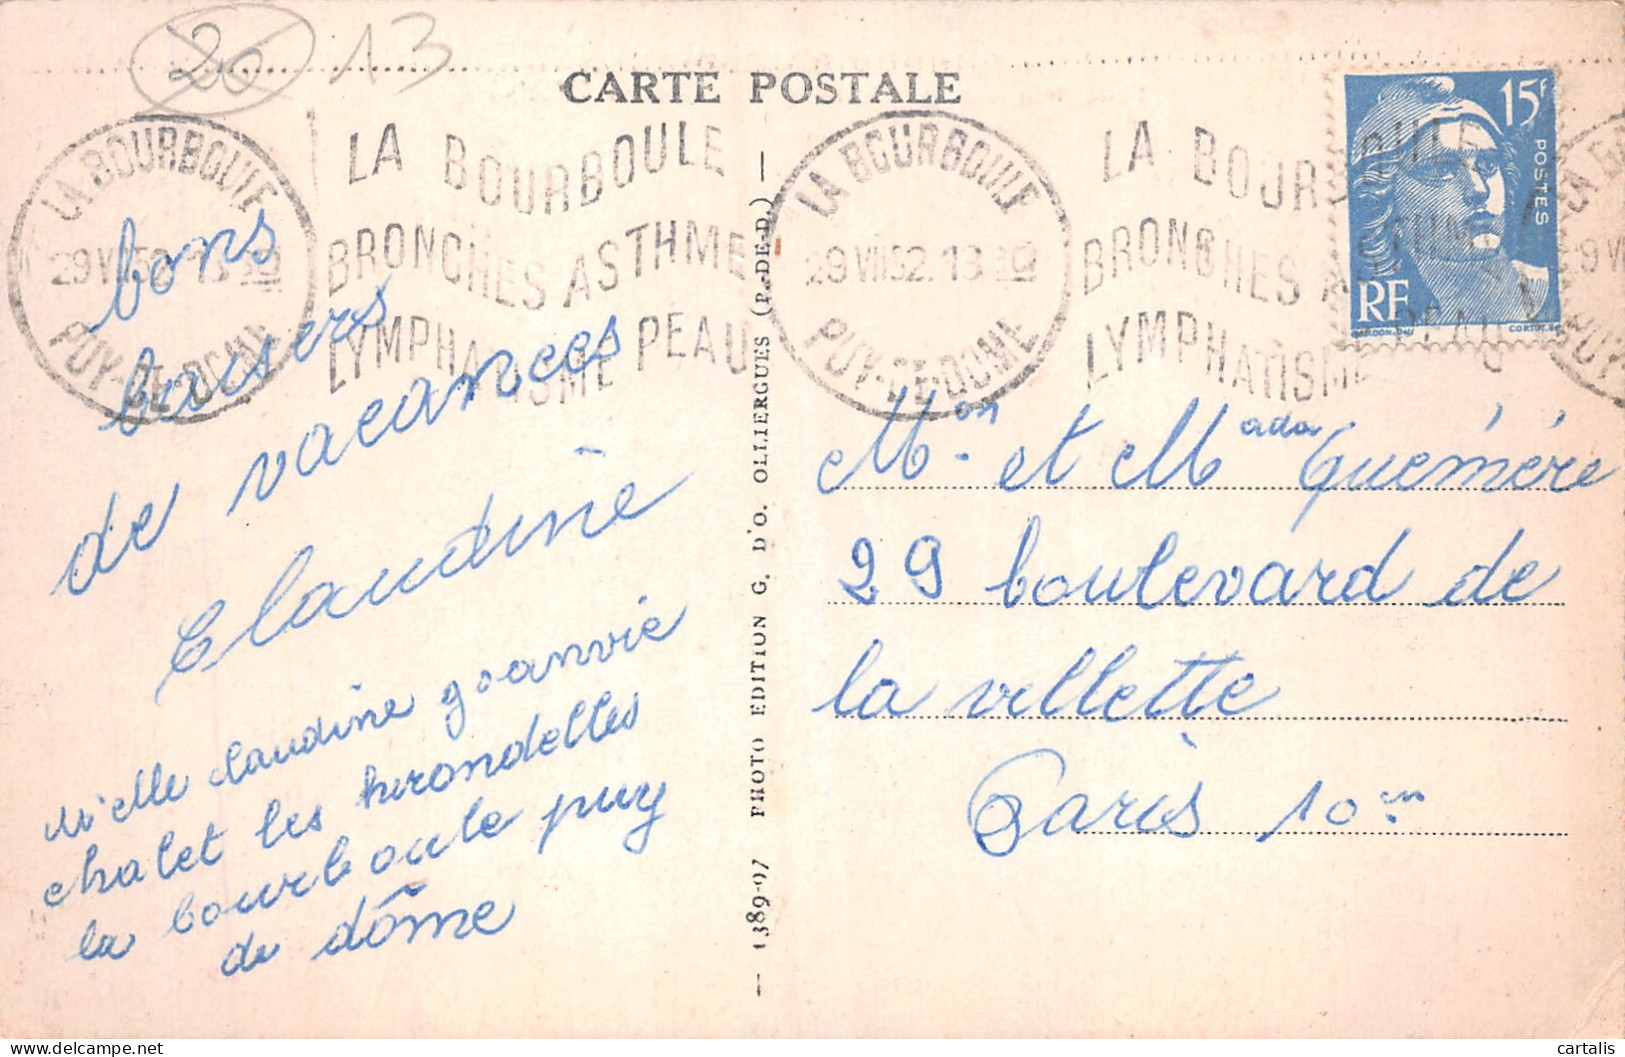 20 13
CARTE POSTALE
LA BOURBOULE
29 VII 52. 18
PUY-DE-DOME
LA BOURBOULE
BRONCHES ASTHME
LYMPHATISME PEAU
LA BOURBOULE
29 VII 52. 18
PUY-DE-DOME
LA BOURBOULE
BRONCHES ASTHME
LYMPHATISME PEAU
15F
POSTES
RF
GANDON.DEL
CORTOT.SC
bons
baisers
de vacances
Claudine
Mielle claudine goanvic
chalet les hirondelles
la bourboule puy
de dôme
— 1389-97 PHOTO EDITION G. D'O. OLLIERGUES (P.-DE-D.) —
Mon. et Mada Guéméré
29 boulevard de
la villette
Paris 10m
cartalis
www.delcampe.net